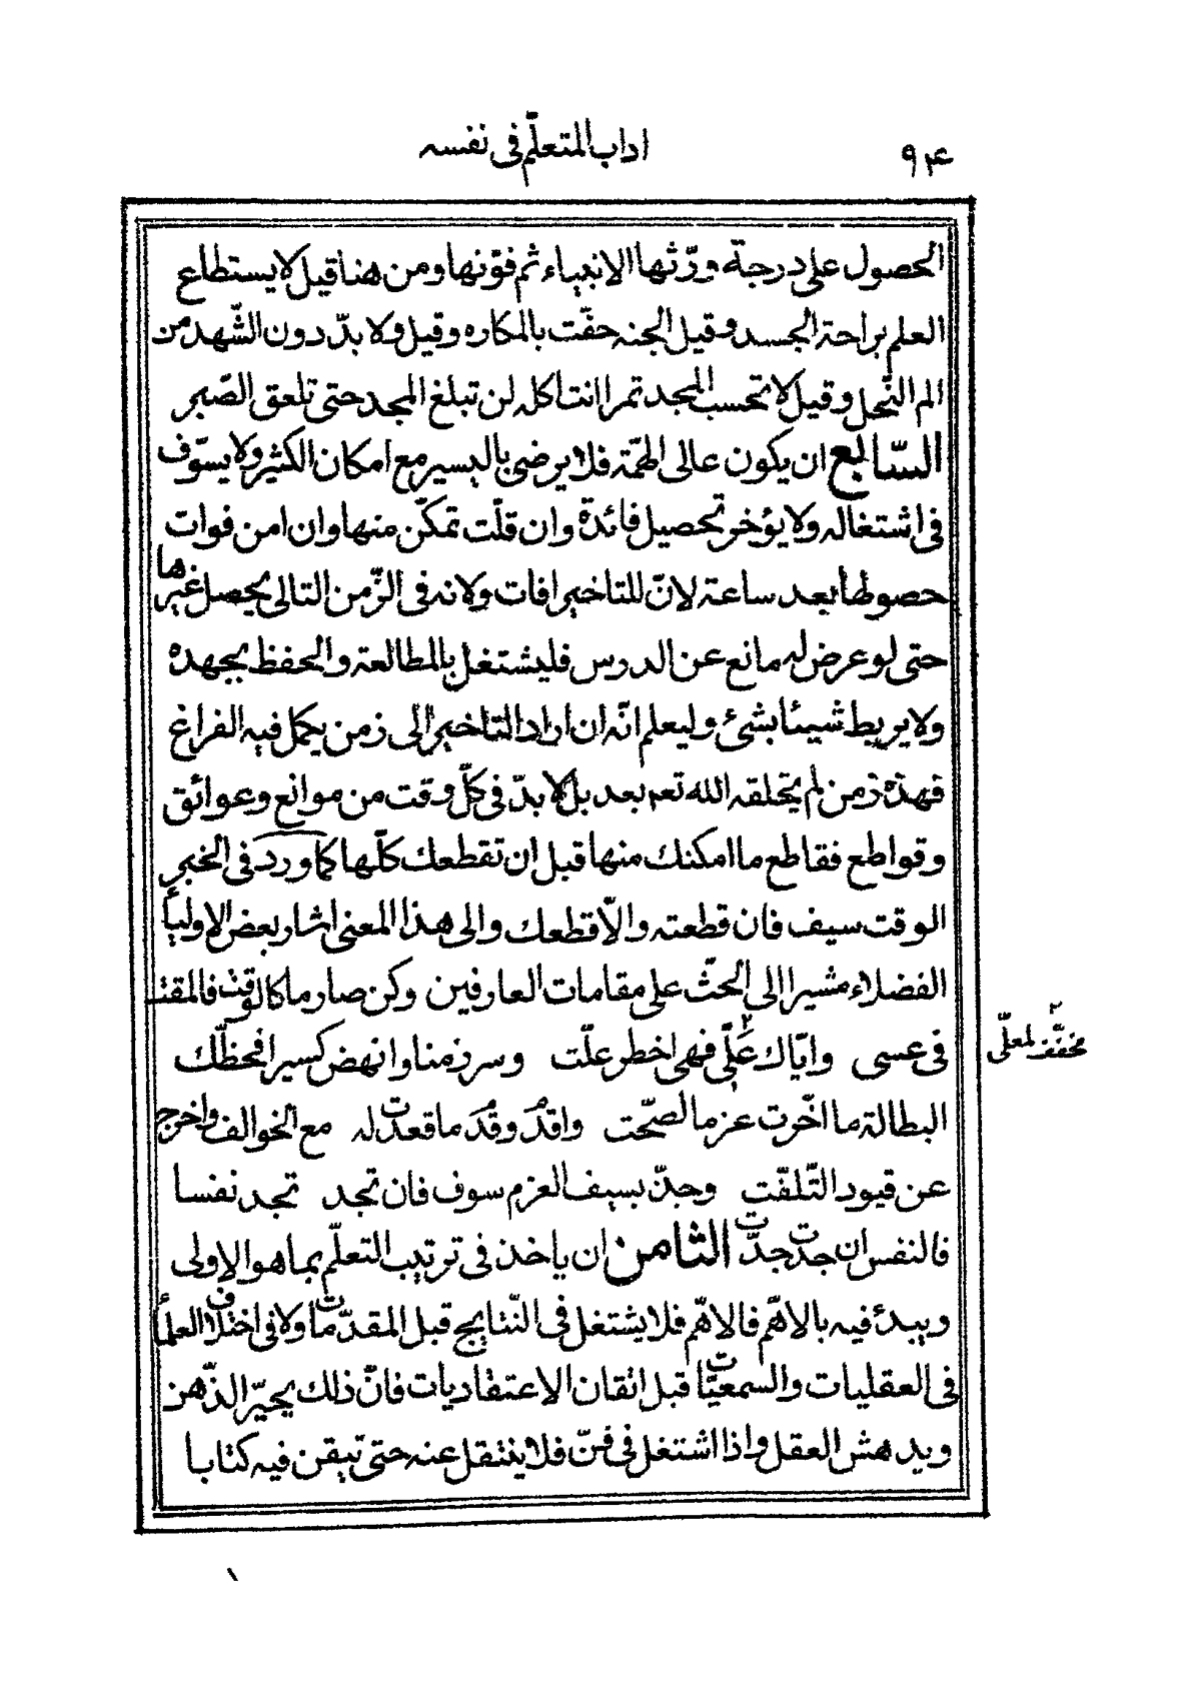 ٩٤
اداب المتعلّم فى نفسه
الحصول على درجة ورّثها الانبياء ثم فوّتها ومن هنا قيل لا يستطاع
العلم براحة الجسد وقيل الجنه حفّت بالمكاره وقيل ولا بدّ دون الشّهد من
الم النّحل وقيل لا تحسب المجد تمرا انت اكله لن تبلغ المجد حتى تلعق الصّبر
السّابع ان يكون عالى الهمّة فلا يرضى باليسير مع امكان الكثير ولا يسوّف
فى اشتغاله ولا يؤخر تحصيل فائدة وان قلّت تمكّن منها وان امن فوات
حصولها بعد ساعة لانّ للتاخير افات ولانه فى الزّمن التالى يحصل غيرها
حتى لو عرض له مانع عن الدرس فليشتغل بالمطالعة والحفظ بجهده
ولا يربط شيئا بشئ وليعلم انّه ان اراد التاخير الى زمن يكمل فيه الفراغ
فهذه زمن لم يخلقه الله تعم بعد بل لا بدّ فى كلّ وقت من موانع وعوائق
وقواطع فقاطع ما امكنك منها قبل ان تقطعك كلّها كما ورد فى الخبر
الوقت سيف فان قطعته والّا قطعك والى هذا المعنى اشار بعض الاولياء
الفضلاء مشيرا الى الحثّ على مقامات العارفين وكن صارما كالوقت فالمقت
فى عسى واياّك علّى فهى اخطر علّت وسر زمنا وانهض كسيرا فحظّك
مخفّف لعلّى
البطالة ما اخّرت عزما لصحّت واقدم وقدّم ما قعدت له مع الخوالف واخرج
عن قيود التّلفّت وجذّ بسيف العزم سوف فان تجد تجد نفسا
فالنفس ان جدت جدّت الثامن ان ياخذ فى ترتيب التعلّم بما هو الاولى
ويبدء فيه بالاهّم فالاهّم فلا يشتغل فى النّتايج قبل المقدّمات ولا فى اختلاف العلمآ
فى العقليات والسمعيّات قبل اتقان الاعتقاديات فانّ ذلك يحيّر الذّهن
ويدهش العقل واذا اشتغل فى فنّ فلا ينتقل عنه حتى تيقن فيه كتابا